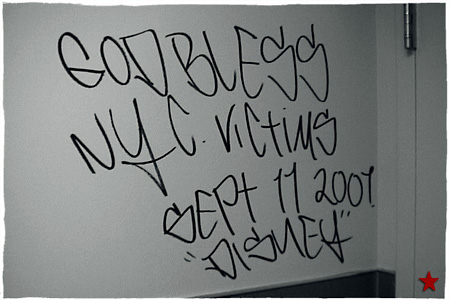 GOD BLESS
NYC. VICTIMS
SEPT 11 2001.
"DISNEY"